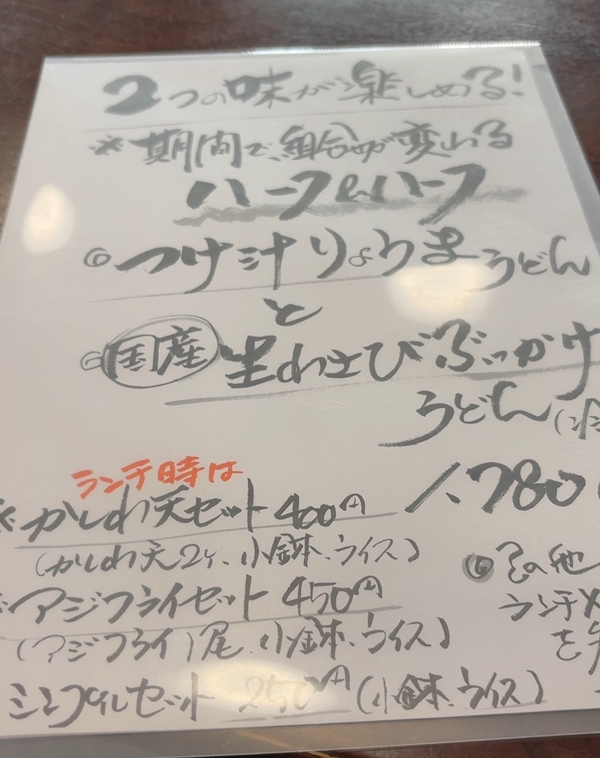 2つの味が楽しめる!
※期間で、組合せが変わる
ハーフ&ハーフ
◎つけ汁りょうまうどん
と
◎国産生わさびぶっかけ
うどん(冷
1.780
ランチ時は
※かしわ天セット 400円
(かしわ天2ヶ、小鉢、ライス)
※アジフライセット 450円
(アジフライ1尾、小鉢、ライス)
シンプルセット 250円(小鉢、ライス)
◎その他
ランチメ
を